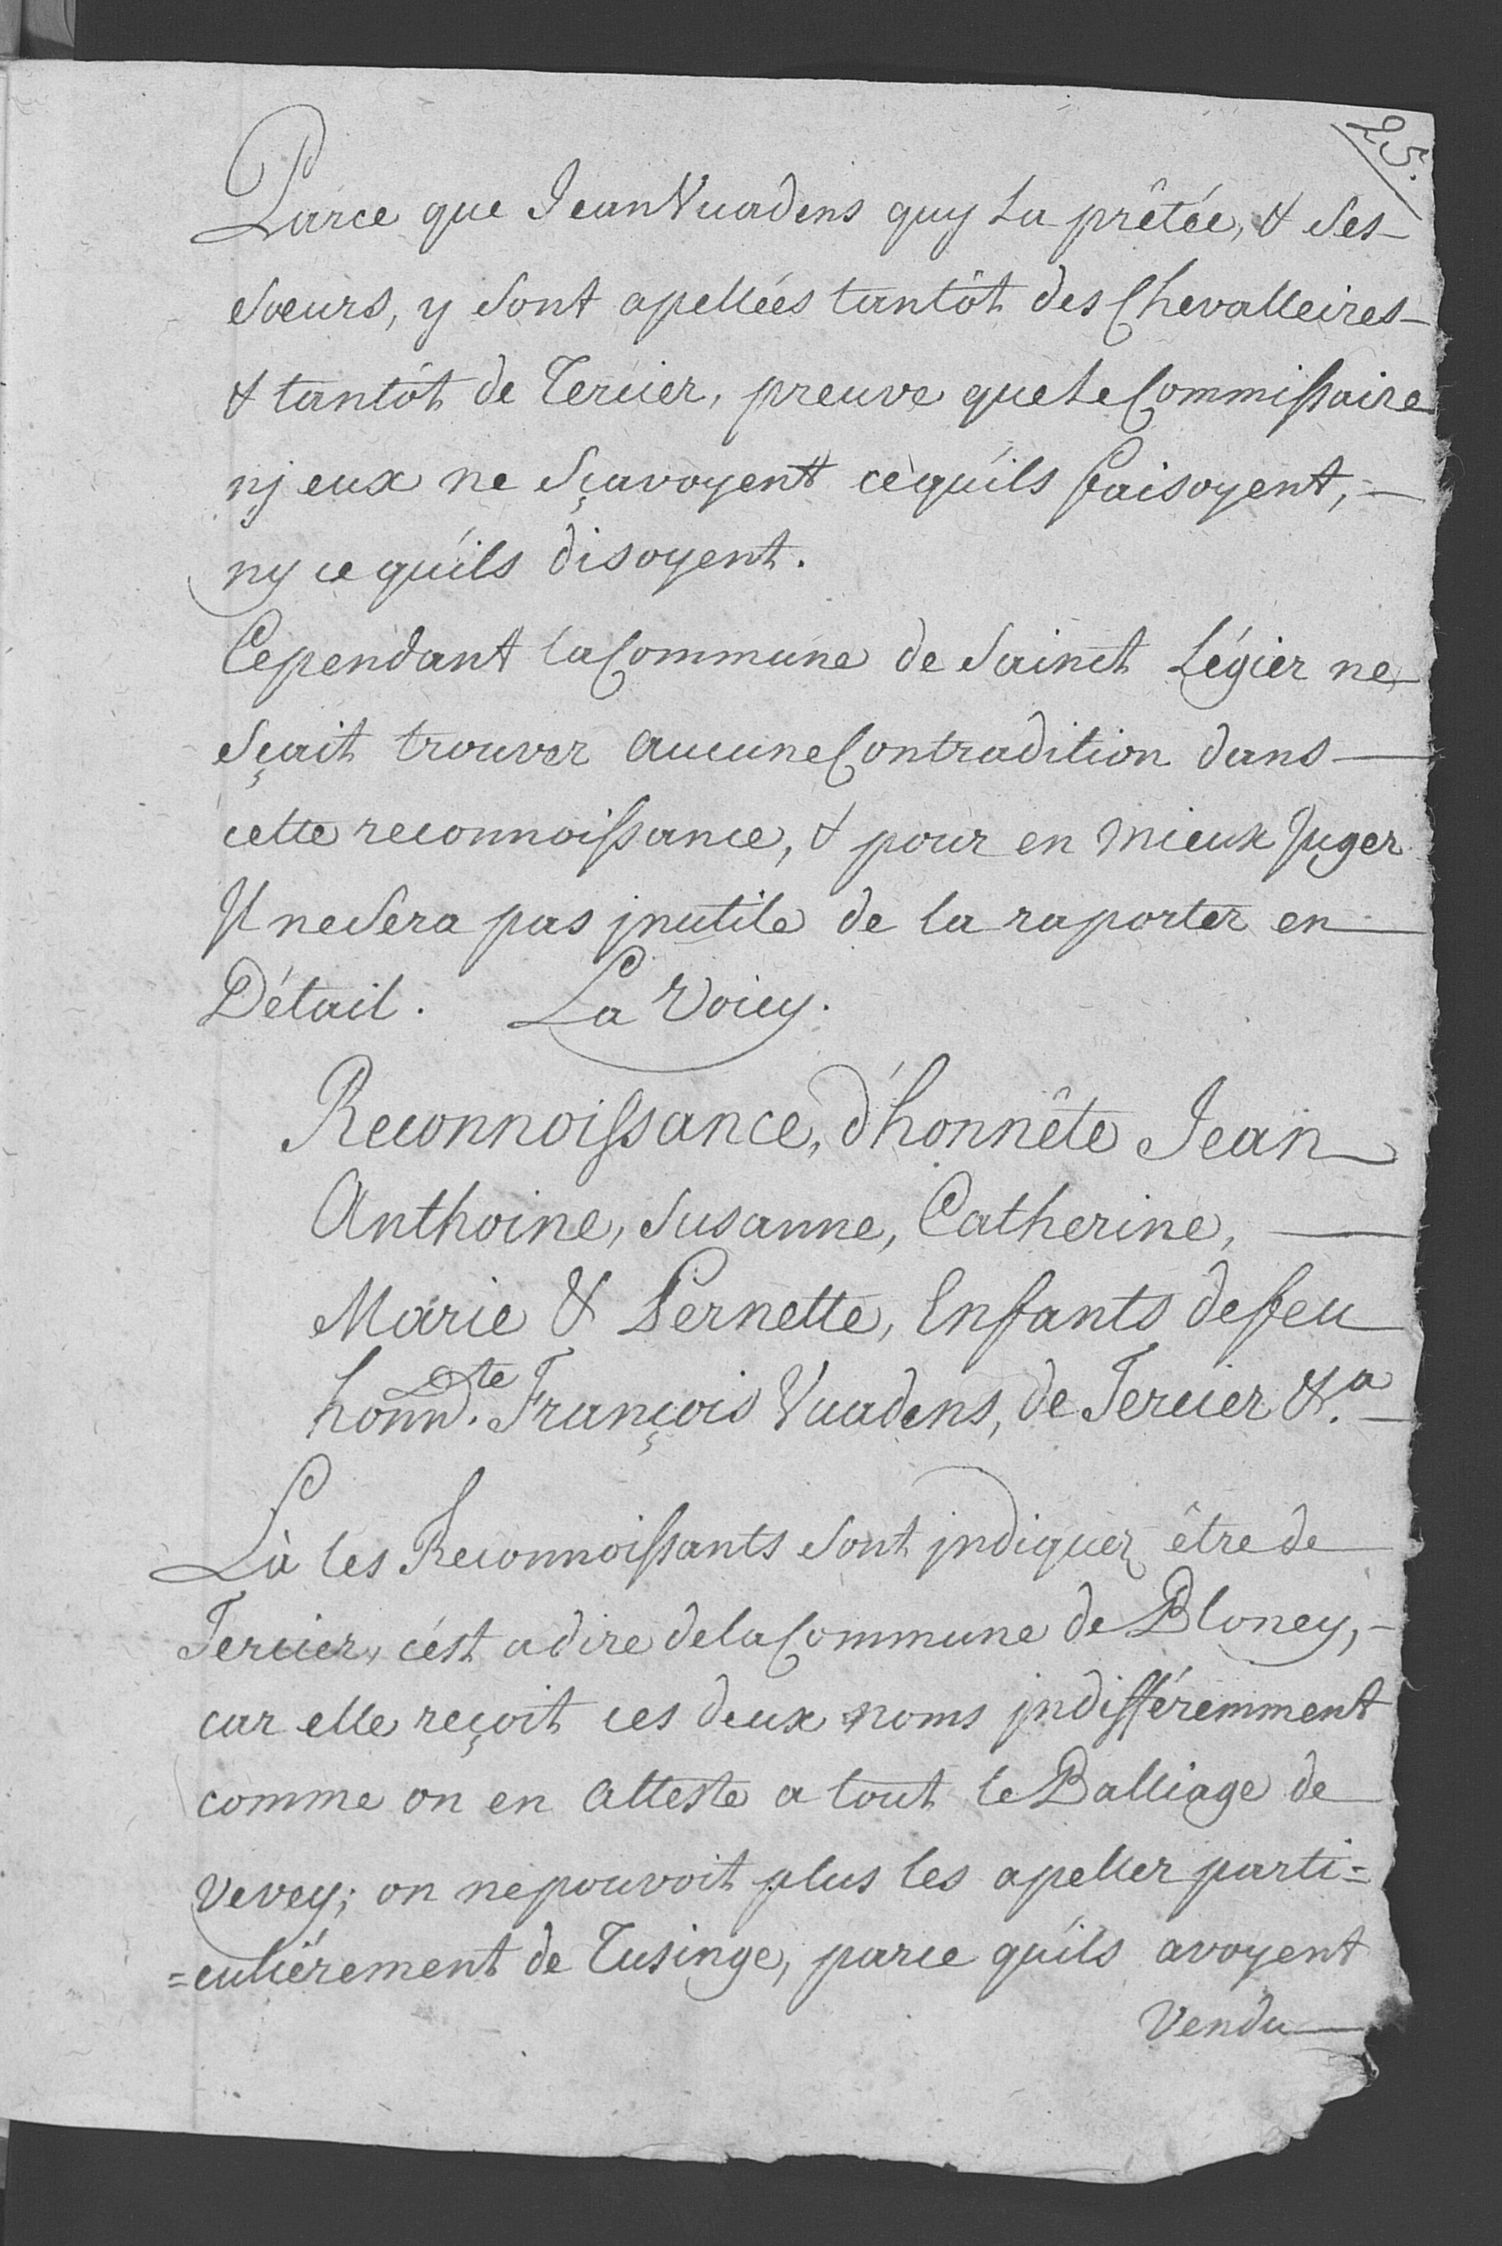 25.
Parce que Jean Vuadens quy La prêtée, & Ses
Sœurs, y Sont apellées tantôt des Chevalleires
& tantôt de Tercier, preuve que Le Commissaire
nj eux ne Sçavoyent cequ'ils faisoyent,
ny ce qu'ils disoyent.
Cependant la Commune de Sainct Légier ne
Sçait trouver aucune Contradition dans
cette reconnoissance, & pour en mieux Juger
Il ne Sera pas jnutile de la raporter en
Détail. La Voicy.
Reconnoissance, d'honnête Jean
Anthoine, Susanne, Catherine,
Marie & Pernette, Enfants de feu
honn.te François Vuadens, de Tercier &.a
Là les Reconnoissants Sont jndiquez être de
Tercier, c'est a dire de la Commune de Bloney,
car elle reçoit ces deux noms jndifféremment
comme on en atteste a tout le Balliage de
Vevey; on ne pouvoit plus les apeller parti=
=culiérement de Tusinge, parce qu'ils avoyent
Vendu